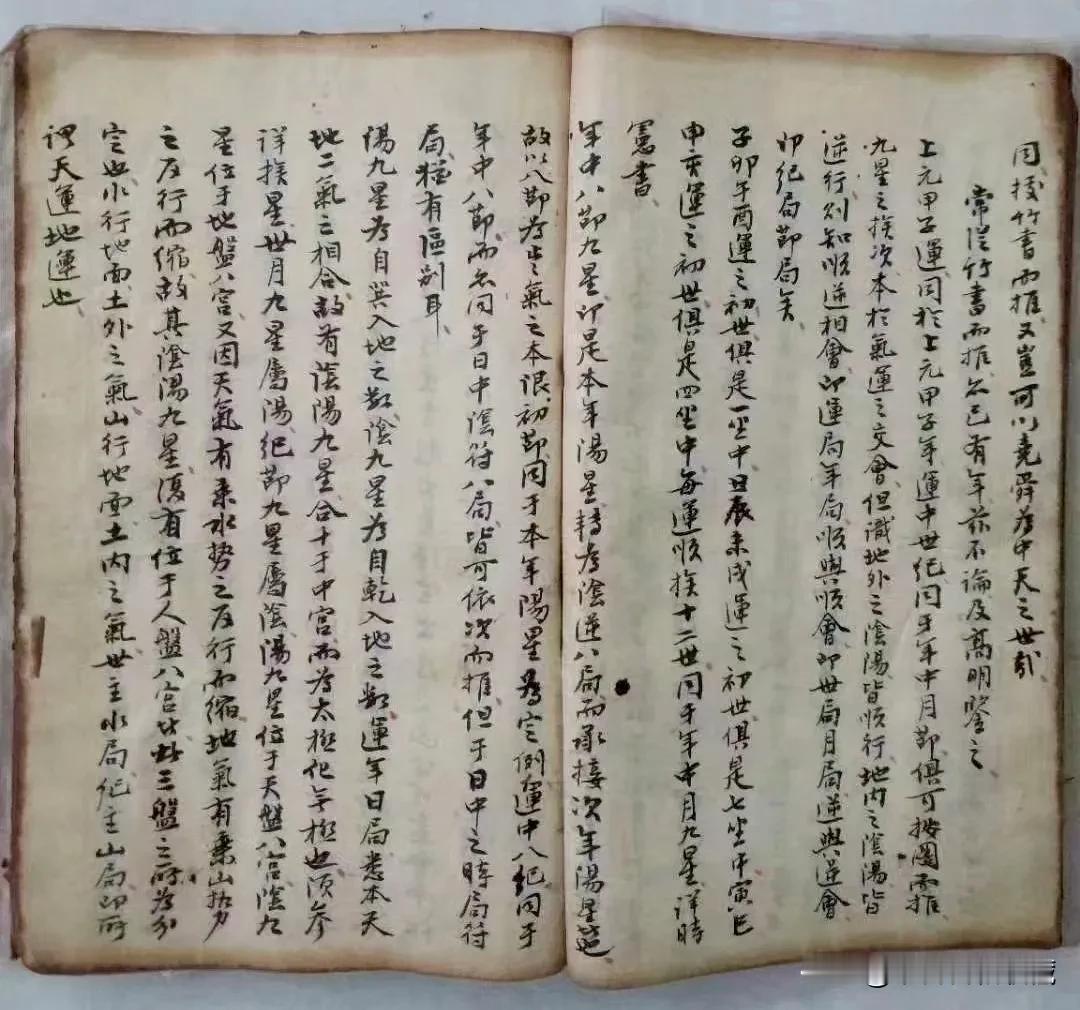 同按竹書而推又豈可以堯舜為中天之世哉
常從竹書而推亦已有年茲不論及高明鑒之
上元甲子運同於上元甲子年運中世紀同于年中月節俱可按圖而推
九星之挨次本於氣運之交會但識地外之陰陽皆順行地內之陰陽皆
逆行則知順逆相會即運局年局順與順會即世局月局逆與逆會
即紀局節局矣
子卯午酉運之初世俱是一坐中丑辰未戌運之初世俱是七坐中寅巳
申亥運之初世俱是四坐中每運順挨十二世同于年中月九星詳時
憲書
年中八節九星即是本年陽星轉為陰逆八局而承接次年陽星
故以八節為步氣之本誤初節同于本年陽星為定例運中八紀同于
年中八節而亦同于日中陰符八局皆可依次而推但于日中之時局符
局猶有區別耳
陽九星為自巽入地之數陰九星為自乾入地之數運年日局悉本天
地二氣之相合故有陰陽九星合十于中宮而為太極化無極也須參
詳挨星世月九星屬陽紀節九星屬陰陽九星位于天盤八宮陰九
星位于地盤八宮又因天氣有乘水勢之反行而縮地氣有乘山勢
之反行而縮故其陰陽九星復有位于人盤八宮此三盤之所為分
定也水行地面土外之氣山行地面土內之氣世主水局紀主山局即所
謂天運地運也